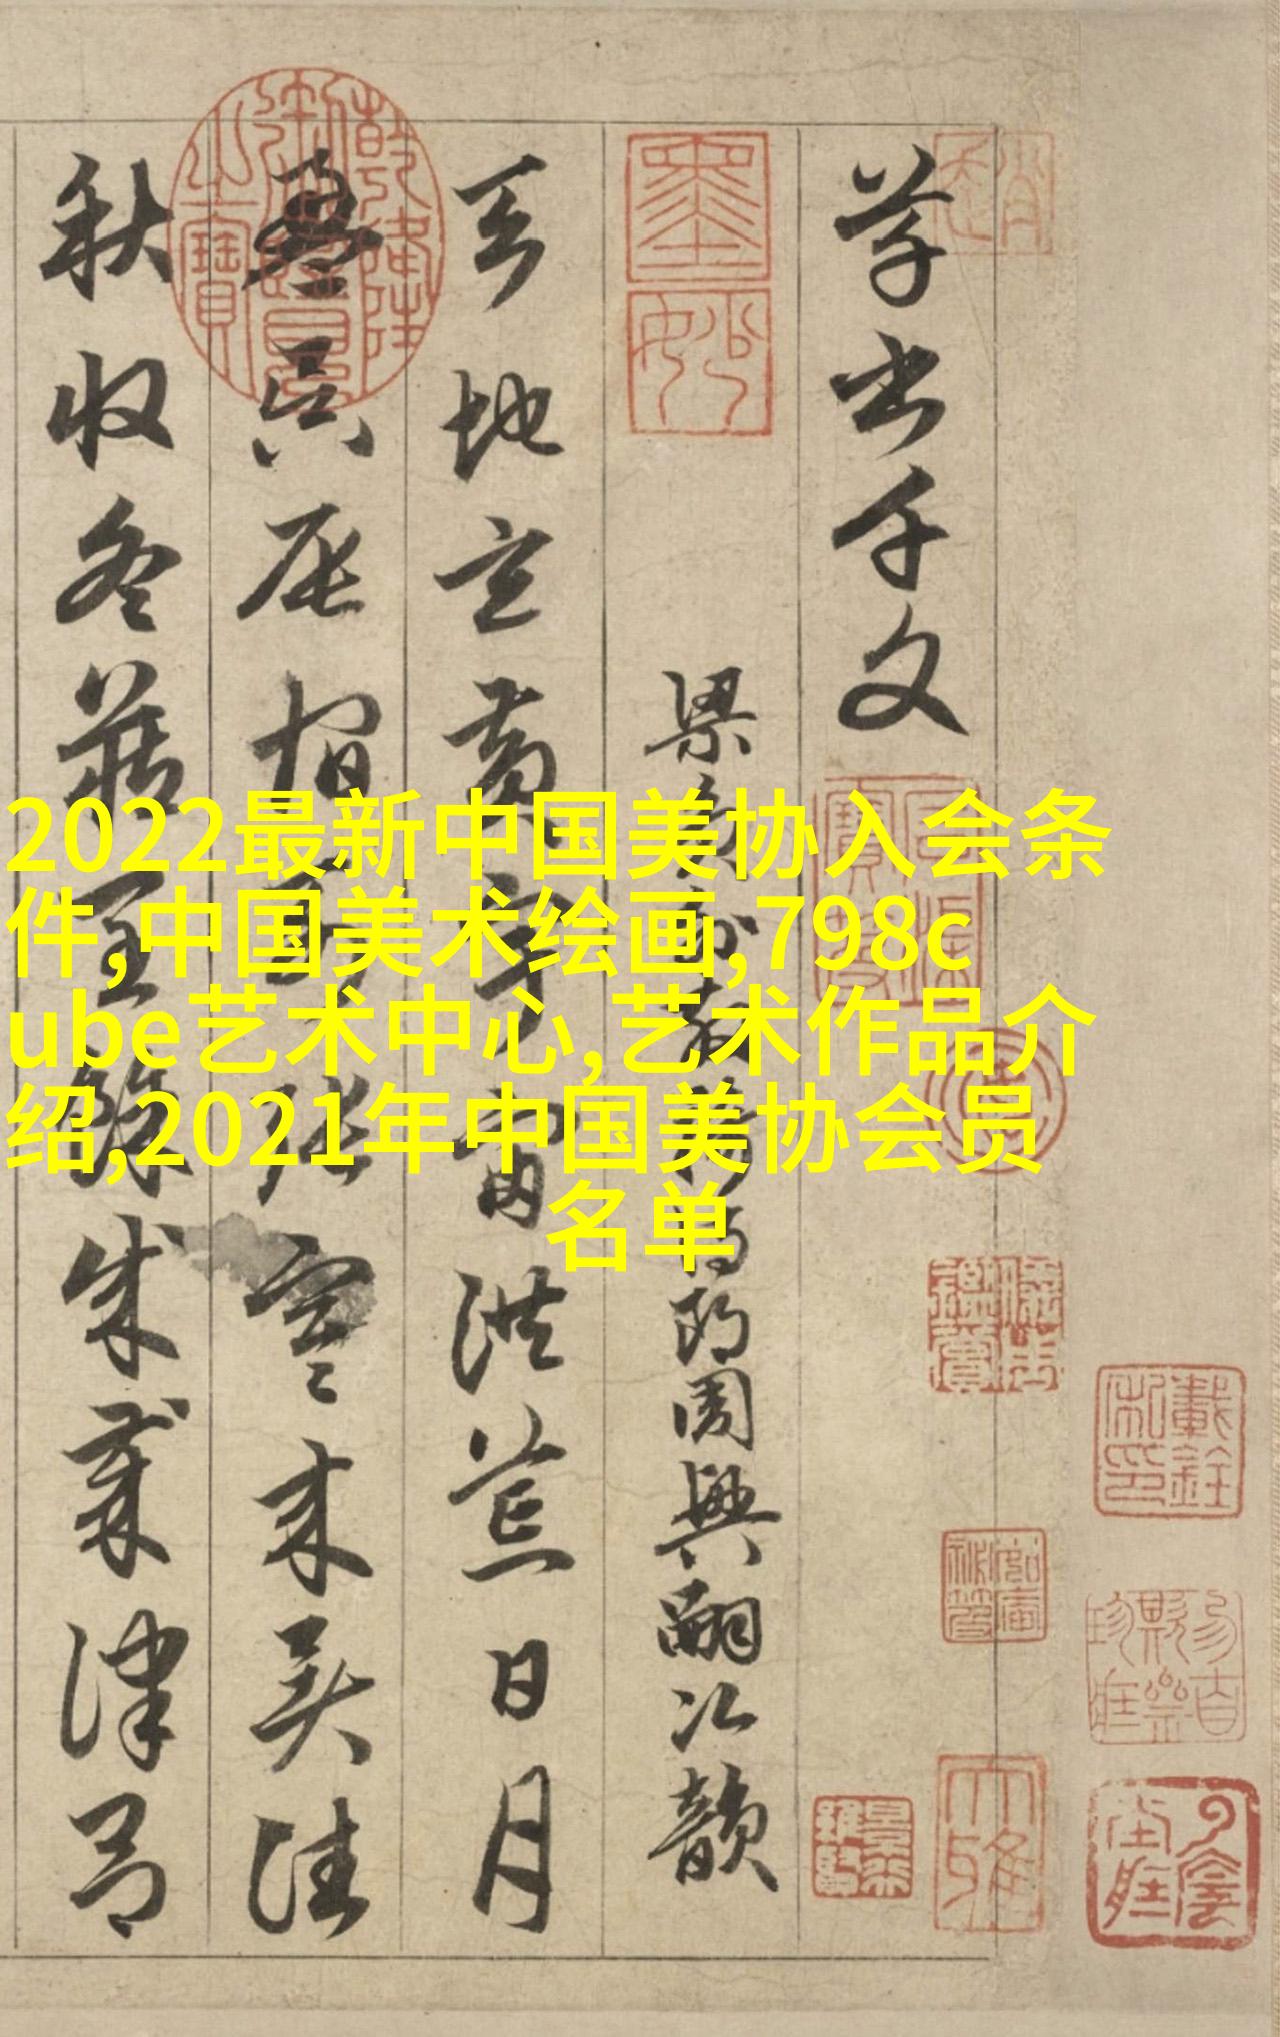 2022最新中国美协入会条
件,中国美术绘画,798c
ube艺术中心,艺术作品介
绍,2021年中国美协会员
名单
草書千文
梁員外散騎侍郎周興嗣次韻
天地玄黃宇宙洪荒日月
盈昃辰宿列張寒來暑往
秋收冬藏閏餘成歲律呂
墨妙
大雅